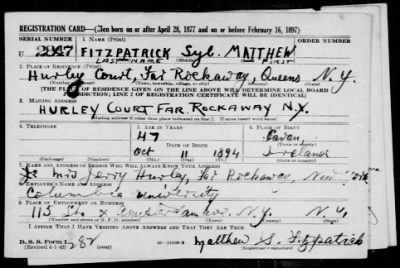 REGISTRATION CARD—(Men born on or after April 28, 1877 and on or before February 16, 1897)
SERIAL NUMBER 1. NAME (Print)
U 2847 FITZPATRICK Syl. MATTHEW
LAST NAME FIRST
2. PLACE OF RESIDENCE (Print)
Hurley Court, Far Rockaway, Queens N.Y.
(Number and street) (Town, township, village, or city) (County) (State)
[THE PLACE OF RESIDENCE GIVEN ON THE LINE ABOVE WILL DETERMINE LOCAL BOARD
JURISDICTION; LINE 2 OF REGISTRATION CERTIFICATE WILL BE IDENTICAL]
3. MAILING ADDRESS
HURLEY COURT FAR ROCKAWAY N.Y.
4. TELEPHONE 5. AGE IN YEARS 6. PLACE OF BIRTH
47 Cavan
DATE OF BIRTH
Oct 11 1894 Ireland
(Exchange) (Number) (Mo.) (Day) (Yr.) (State or country)
7. NAME AND ADDRESS OF PERSON WHO WILL ALWAYS KNOW YOUR ADDRESS
Mrs Jerry Hurley, Far Rockaway, New York
8. EMPLOYER'S NAME AND ADDRESS
Columbia University
9. PLACE OF EMPLOYMENT OR BUSINESS
115 St x Amsterdam Ave. N.Y. N.Y.
(Number and street or R. F. D. number) (Town) (County) (State)
I AFFIRM THAT I HAVE VERIFIED ABOVE ANSWERS AND THAT THEY ARE TRUE
D. S. S. Form 1
(Revised 4-1-42) Matthew S. Fitzpatrick